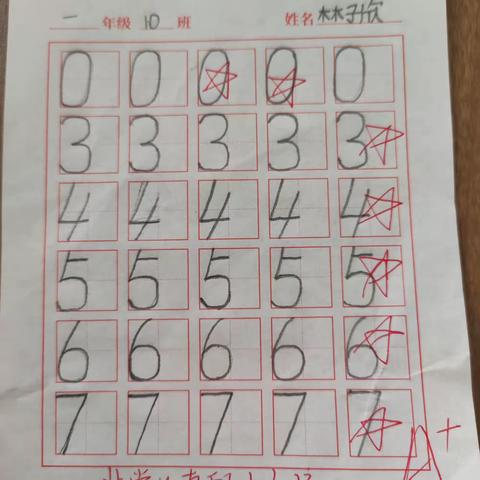 一 年级 10 班 姓名 林子欣
0 0 0 0 0
3 3 3 3 3
4 4 4 4 4
5 5 5 5 5
6 6 6 6 6
7 7 7 7 7
A+